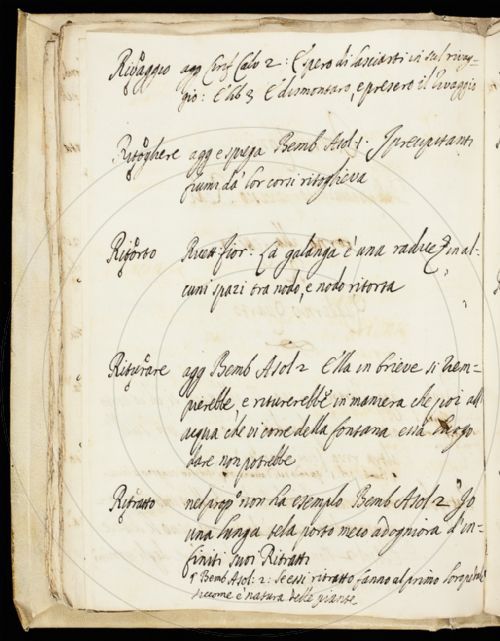 Rivaggio agg Girol Calv 2: E spero di lasciarti in sul rivag-
gio: E lib 3 E dismontaro, e presero il rivaggio
Ritogliere agg e spiega Bemb Asol 1. I precipitanti
fiumi da lor corsi ritoglieva
Ritorto Ricett fior: La galanga è una radice in al-
cuni spazi tra nodo, e nodo ritorta
Riturare agg Bemb Asol 2 Ella in brieve si riem-
pierebbe, e riturerebbe in maniera che poi all
acqua che vi corre della fontana essa luogo
dare non potrebbe
Ritratto nel prop° non ha esemplo Bemb Asol 2 Io
una lunga tela porto meco adogniora d'in-
finiti suoi Ritratti
Bemb Asol: 2: Se essi ritratto fanno al primo
siccome è natura delle piante